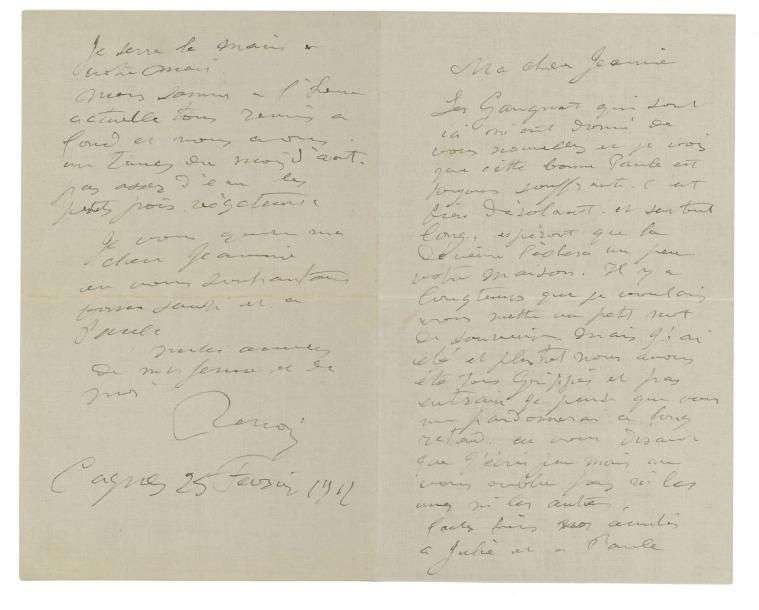 Ma chère Jeannie
Les Gangnat qui sont
là m'ont donné de
vos nouvelles et je vois
que cette bonne Paule est
toujours souffrante. C'est
bien désolant. et surtout
long, espérons que la
déveine lâchera un peu
votre maison. Il y a
longtemps que je voulais
vous mettre un petit mot
de souvenir mais j'ai
été et plutôt nous avons
été tous grippés et pas
entrain je pense que vous
me pardonnerez ce long
retard. en vous disant
que j'écris peu mais ne
vous oublie pas ni les
unes ni les autres.
faites bien nos amitiés
à Julie et à Paule
Je serre la main à
votre mari
Nous sommes à l'heure
actuelle tous remis à
fond et nous avons
un temps du mois d'août.
pas assez d'eau les
petits pois végètent
Je vous ma
chère Jeannie
en vous souhaitant
bonne santé et à
Paule
mille amitiés
de ma femme et de
moi
Renoir
Cagnes 25 Février 1912